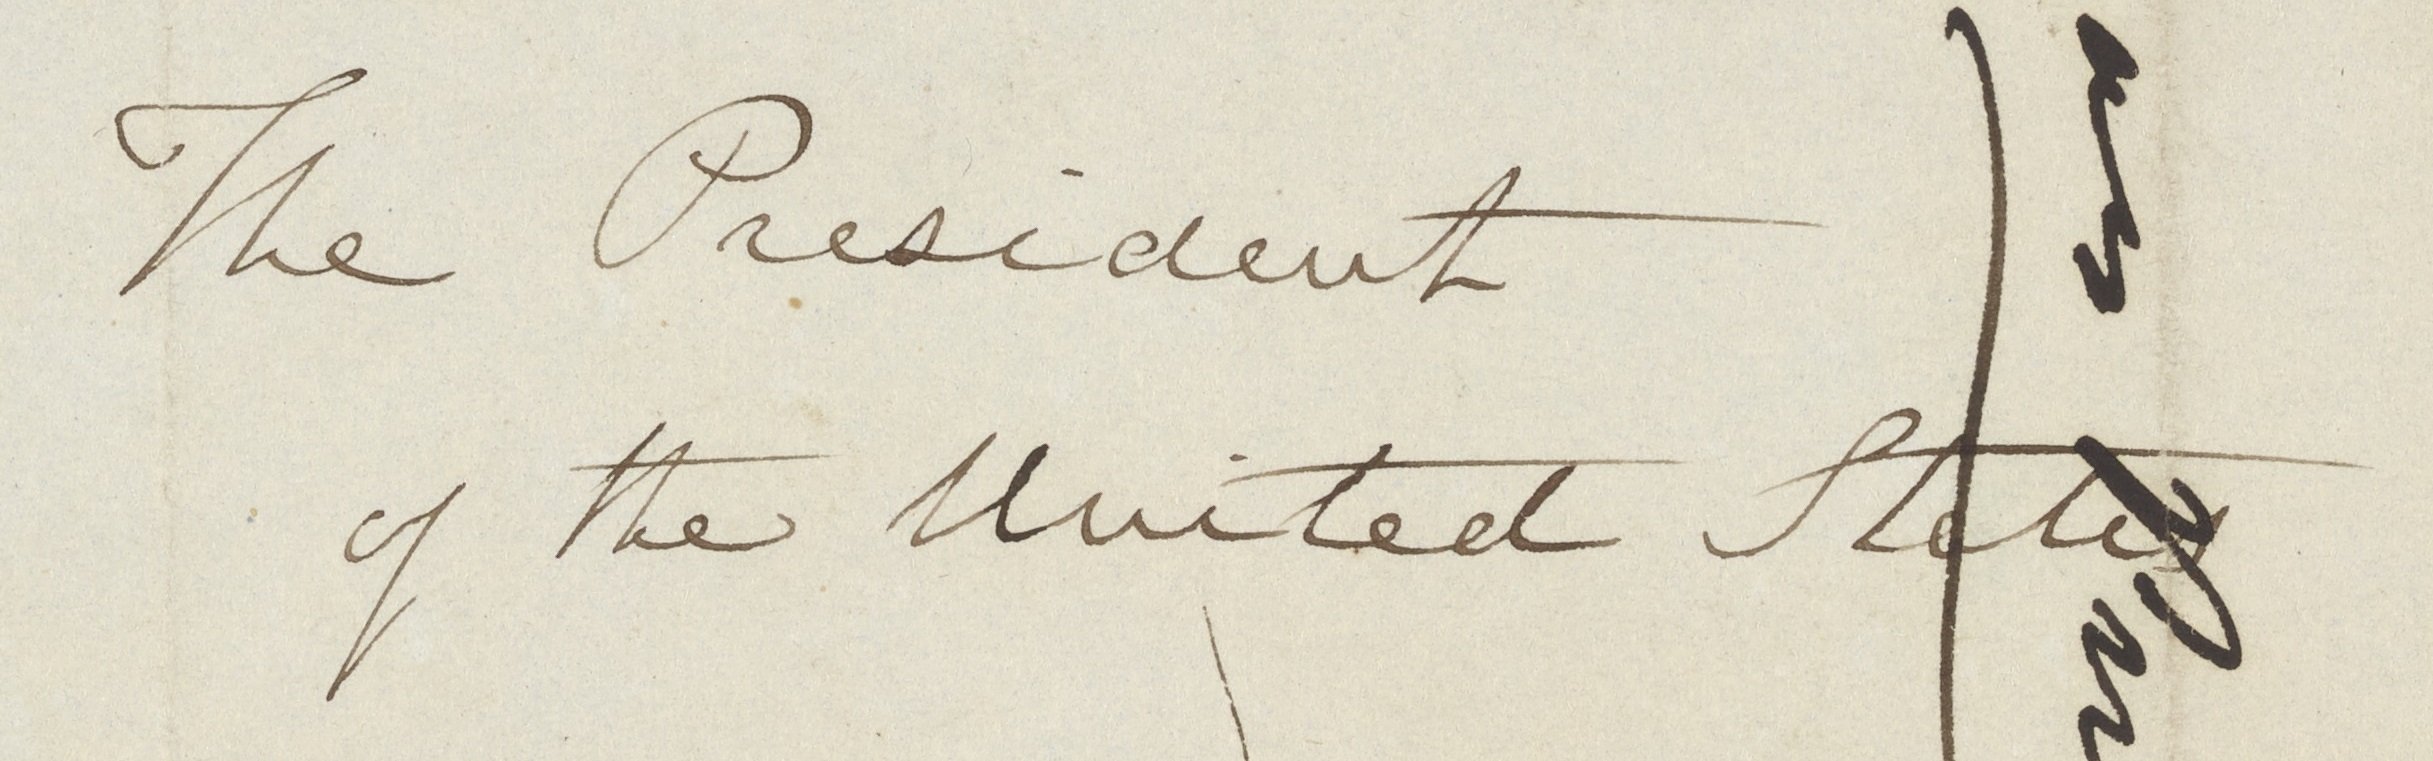 The President
of the United States